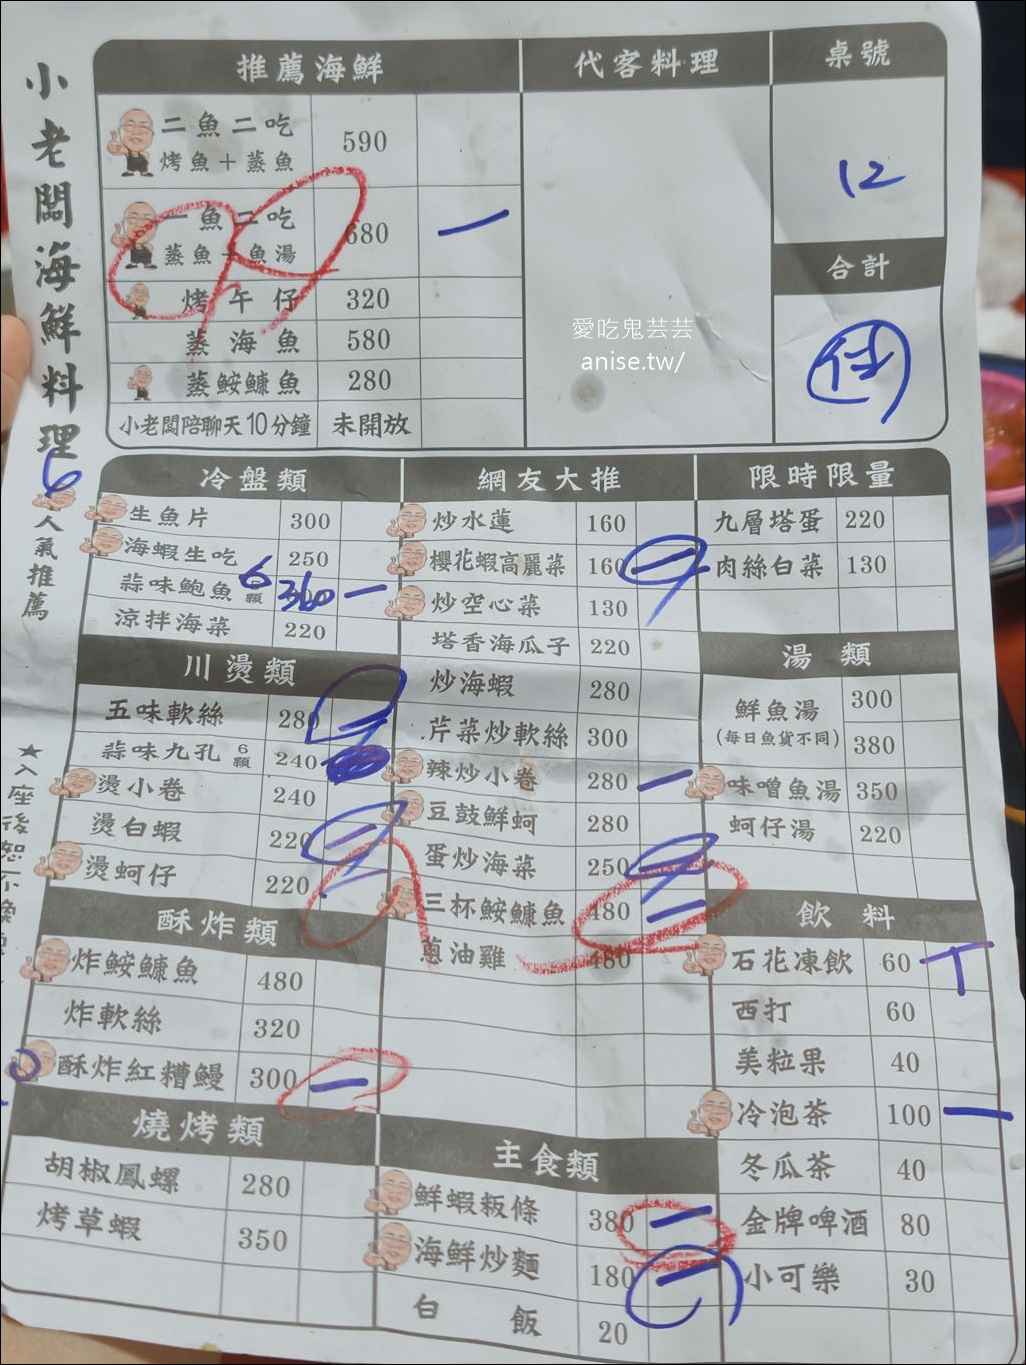 小老闆海鮮料理
人氣推薦
推薦海鮮
二魚二吃
烤魚＋蒸魚 590
一魚二吃
蒸魚＋魚湯 680 一
烤午仔 320
蒸海魚 580
蒸鮟鱇魚 280
小老闆陪聊天10分鐘 未開放
代客料理
桌號
12
合計
愛吃鬼芸芸
anise.tw/
冷盤類
生魚片 300
海蝦生吃 250
蒜味鮑魚 6顆 360 一
涼拌海菜 220
川燙類
五味軟絲 280 一
蒜味九孔 6顆 240
燙小卷 240
燙白蝦 220 一
燙蚵仔 220
酥炸類
炸鮟鱇魚 480
炸軟絲 320
酥炸紅糟鰻 300 一
燒烤類
胡椒鳳螺 280
烤草蝦 350
網友大推
炒水蓮 160
櫻花蝦高麗菜 160 一
炒空心菜 130
塔香海瓜子 220
炒海蝦 280
芹菜炒軟絲 300
辣炒小卷 280 一
豆鼓鮮蚵 280
蛋炒海菜 250 一
三杯鮟鱇魚 480 一
蔥油雞 480
主食類
鮮蝦粄條 380 一
海鮮炒麵 180 一
白飯 20
限時限量
九層塔蛋 220
肉絲白菜 130
湯類
鮮魚湯 300
(每日魚貨不同) 380
味噌魚湯 350
蚵仔湯 220
飲料
石花凍飲 60 T
西打 60
美粒果 40
冷泡茶 100 一
冬瓜茶 40
金牌啤酒 80
小可樂 30